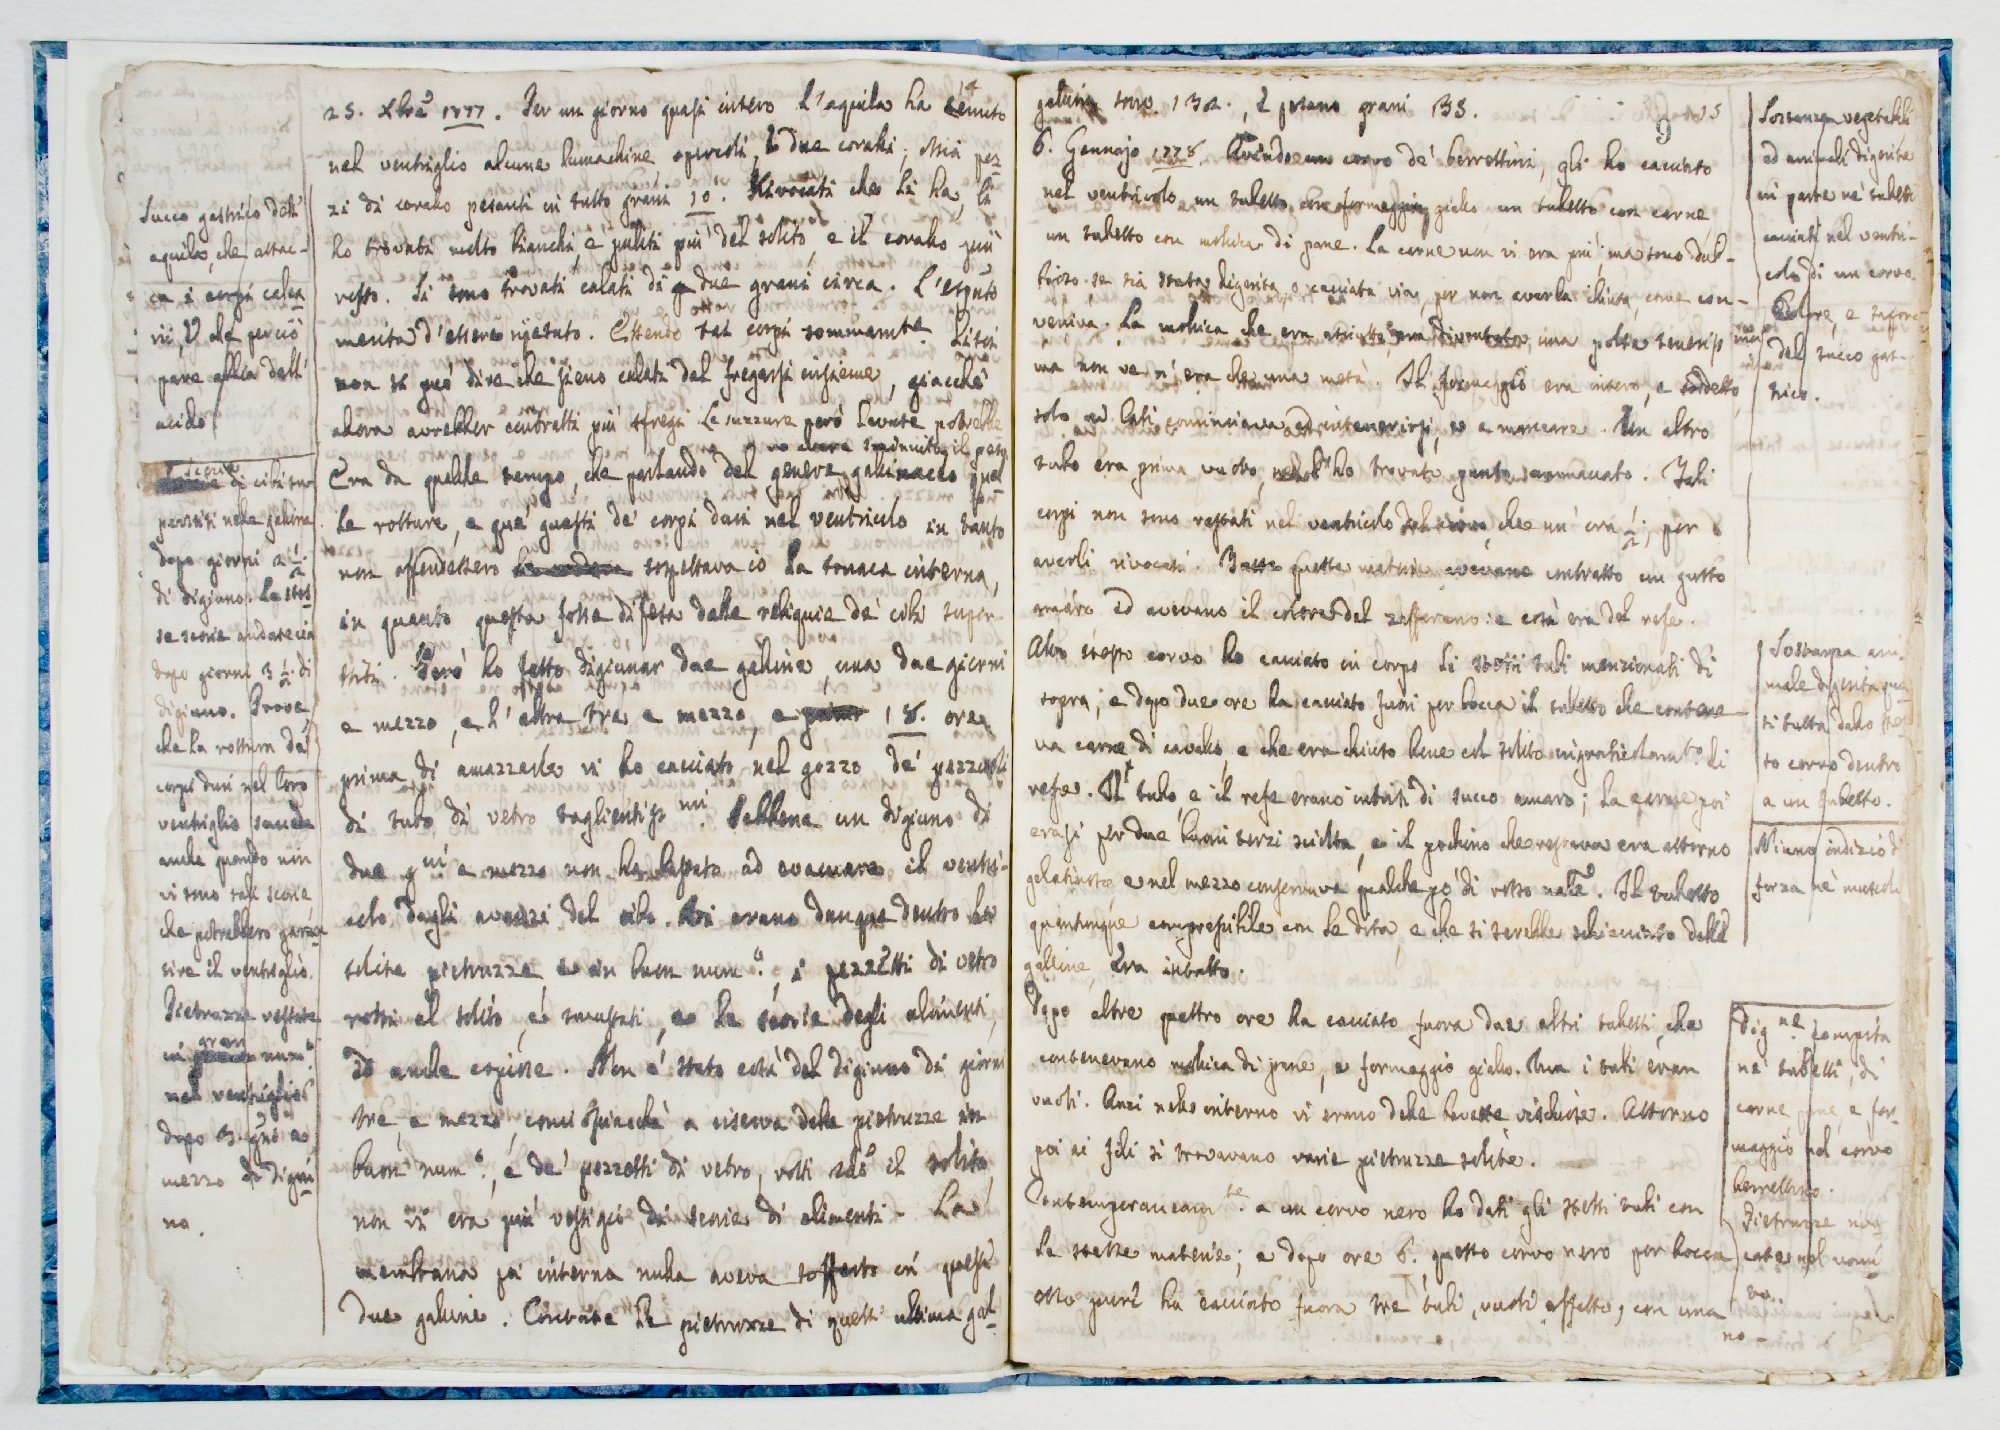 25. Xbre 1777. Per un giorno quasi intero l'aquila ha tenuto
nel ventriglio alcune lumachine, opercoli, e due coralli, Mià pez
zi di corallo pesanti in tutto grani 10. Rivocati che li ha, li
ho trovati molto bianchi, e puliti più del solito, e il corallo più
rosso. Si sono trovati calati di due grani circa. L'esputo
merita d'essere ripetuto. Essendo tai corpi sommamte lisci
non si può dire che sieno calati dal fregarsi insieme, giacchè
allora avrebber contratti più sfregi. Le suzzure però levate potrebbe
ro avere sminuito il peso
Era da qualche tempo, che parlando del genere gallinaceo quel
le rotture, e que' guasti de' corpi duri nel ventricolo in tanto
non offendessero sospettava io la tonaca interna,
in quanto questa fosse difesa dalle reliquie de' cibi super
stiti. Però ho fatto digiunar due galline, una due giorni
e mezzo, e l'altra tre e mezzo, e 18. ore
prima di amazzarle vi ho cacciato nel gozzo de' pezzuoli
di tubo di vetro taglientissmi. Sebbene un digiuno di
due gni e mezzo non ha bastato ad evacuare il ventri-
colo dagli avanzi del cibo. Vi erano dunque dentro le
solite pietruzze, e in buon numo., i pezzetti di vetro
rotti al solito, e smussati, e le scorie degli alimenti,
ed anche copiose. Non è stato così del digiuno di giorni
tre, e mezzo, conciossiachè a riserva delle pietruzze in
buon numo., e de' pezzetti di vetro, rotti sedo il solito,
non vi era più vestigio di scorie di alimenti. La
membrana poi interna nulla aveva sofferto in queste
due galline. Contate le pietruzze di quest' ultima gal-
Succo gastrico dell'
aquila, che attac-
ca i corpi calca
rii, e che perciò
pare abbia dell'
acido.
Scorie di cibi su-
perstiti nelle galline
dopo giorni 2 1/2
di digiuno. Le stes
se scorie andate via
dopo giorni 3 1/2 di
digiuno. Prove
che la rottura de'
corpi duri nel loro
ventriglio succede
anche quando non
vi sono tali scorie
che potrebbero garan
tire il ventriglio.
Pietruzze restate
in gran numo.
nel ventriglio
dopo 3. gni e
mezzo di digiu
no.
9 15
gallina sono 132., e pesano grani 135.
6. Gennajo 1778. Avendo un corvo de' berrettini, gli ho cacciato
nel ventricolo un tubetto con formaggio giallo, un tubetto con carne,
un tubetto con mollica di pane. La carne non vi era più, ma sono dub-
bioso se sia stata digerita, o cacciata via, per non averla chiusa, come con-
veniva. La mollica che era asciutta, era diventata una polta tenerissima
ma non ve n'era che una metà. Il formaggio era intero, e sodetto,
solo ai lati cominciava ad intenerirsi, e a mancare. Un altro
tubo era prima vuoto, nè l'ho trovato punto ammaccato. Tali
corpi non sono restati nel ventricolo del corvo, che un' ora 1/2, per
averli rivocati. Tutte queste materie avevano contratto un gusto
amaro ed avevano il colore del zafferano: e così era del refe.
Allo stesso corvo ho cacciato in corpo li stessi tubi menzionati di
sopra; e dopo due ore ha cacciato fuori per bocca il tubetto che contene
va carne di cavallo, e che era chiuso bene col solito ingraticolamto di
refe. Il tubo, e il refe erano intrisi di succo amaro; la carne poi
erasi per due buoni terzi sciolta, e il pochino che restava era attorno
gelatinoso e nel mezzo conservava qualche po' di rosso nate. Il tubetto
quantunque compressibile con le dita, e che si sarebbe schiacciato dalle
galline, era intatto.
Dopo altre quattro ore ha cacciato fuora due altri tubetti, che
contenevano mollica di pane, e formaggio giallo. Ma i tubi eran
vuoti. Anzi nello interno vi erano delle bavette vischiose. Attorno
poi ai fili si trovavano varie pietruzze solite.
Contemporaneamte. a un corvo nero ho dati gli stessi tubi con
le stesse materie; e dopo ore 6. questo corvo nero per bocca
esso pure ha cacciato fuora tre tubi, vuoti affatto, con una
no-
Sostanze vegetabili
ed animali digerite
in parte ne' tubetti
cacciati nel ventri-
colo di un corvo.
Colore, e sapore
del succo gas-
trico.
Sostanza ani-
male digerita qua
si tutta dallo stes
so corvo dentro
a un tubetto.
Niuno indizio di
forza ne' muscoli
Digne. compita
ne' tubetti, di
carne, pane, e for-
maggio nel corvo
berrettino.
Pietruzze